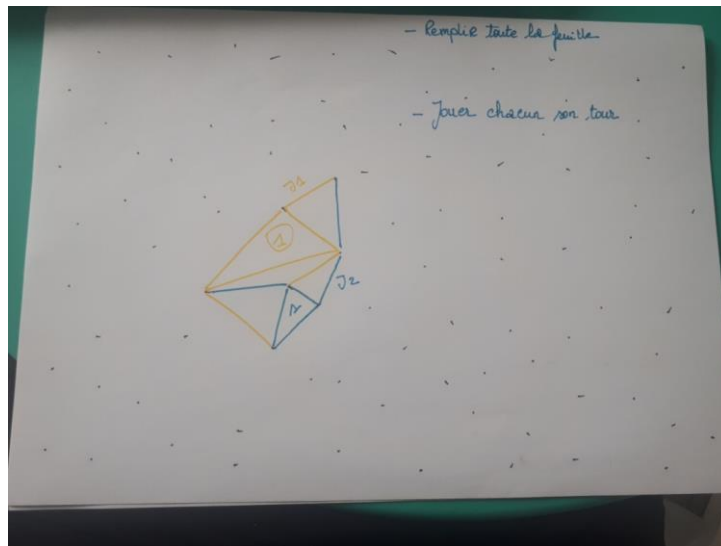 - Remplir toute la feuille
- Jouer chacun son tour
J1
1
J2
1